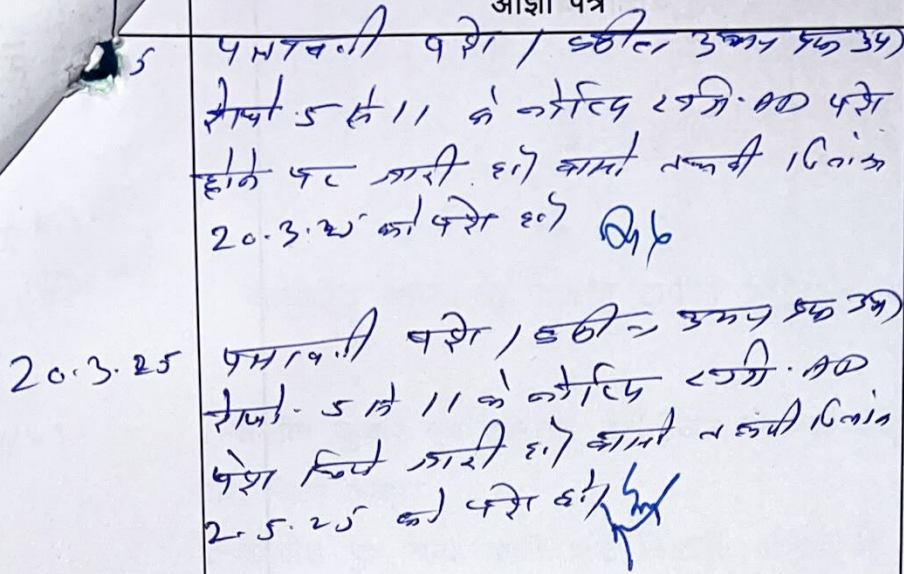 आज्ञा पत्र
5 पत्रावली पेश / वकील उभय पक्ष उप)
रेस्पो. 5 से 11 के नोटिस रजि. AD पेश
होने पर जारी हो) वास्ते तलबी दिनांक
20.3.25 को पेश हो)
20.3.25 पत्रावली पेश / वकील उभय पक्ष उप)
रेस्पो. 5 से 11 के नोटिस रजि. AD
पेश किये जारी हो) वास्ते तलबी दिनांक
2.5.25 को पेश हो)